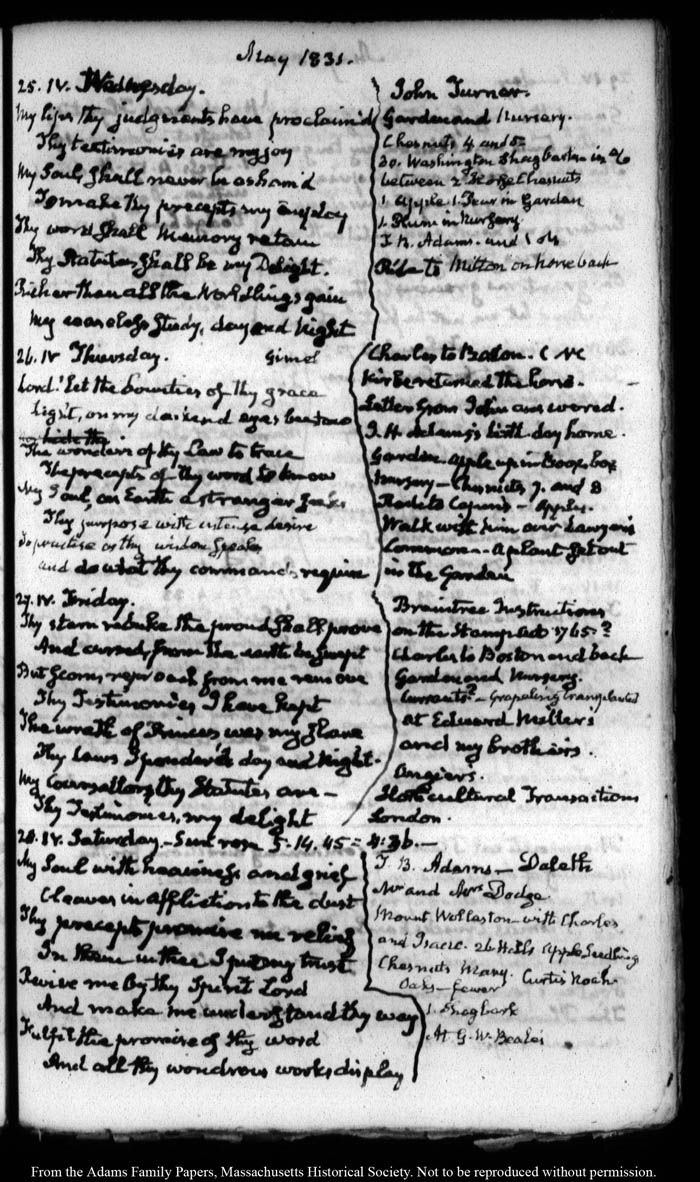 May 1831.
25. IV. Wednesday.
My lips thy judgments have proclaim'd
Thy testimonies are my joy
My Soul shall never be asham'd
To make thy precepts my employ
Thy word shall memory retain
Thy Statutes shall be my Delight.
Richer than all the Worldlings gain
My ceaseless Study, day and Night
John Turner.
Garden and Nursery.
Chesnuts 4 and 5
30. Washington Shagbarks in
between 2 Horse Chesnuts
1. Apple 1. Pear in Garden
1. Plum in Nursery
T. B. Adams. and
Ride to Milton on horseback
26. IV Thursday. Gimel
Lord! Let the bounties of thy grace
Light, on my darkend eyes bestow
hide thy
The wonders of thy Law to trace
The precepts of thy word to know
My Soul, on Earth a stranger seeks
Thy purpose with intense desire
To practise as thy wisdom speaks
and do what thy commands require
Charles to Boston.
Kirke returned the horse.
Letter from John answered.
I. H. Adams's birth day home.
Garden. Apple up in Book box
Nursery — Chesnuts 7. and 8
Walk with him over Lawyer's
Common — A plant set out
in the Garden
27. IV. Friday.
Thy stern rebuke the proud shall prove
And cursed, from the earth be swept
But scorn, reproach from me remove
Thy Testimonies I have kept
The wrath of Princes was my share
Thy laws I ponder'd day and Night.
My Counsellors thy Statutes are —
Thy Testimonies, my delight
Braintree Instructions
on the Stamp Act 1765?
Charles to Boston and back
Garden and Nursery.
Currants? — Grapeling transplanted
at Edward Millers
and my brothers.
Angiers.
Horticultural Transactions
London.
28. IV. Saturday — Sun rose 5-14. 45 = 4:36. —
My Soul with heaviness and grief
Cleaves in affliction to the dust
Thy precepts promise me relief
In them in thee I put my trust
Revive me by thy Spirit Lord
And make me understand thy way
Fulfil the promise of thy word
And all thy wondrous works display
T. B. Adams — Daleth
Mr. and Mrs. Dodge
Mount Wollaston — with Charles
and Isaac. 26 Hills Apple Seedling
Chesnuts Many.
Oaks — fewer
1. Shagbark
At G. W. Beale's
From the Adams Family Papers, Massachusetts Historical Society. Not to be reproduced without permission.